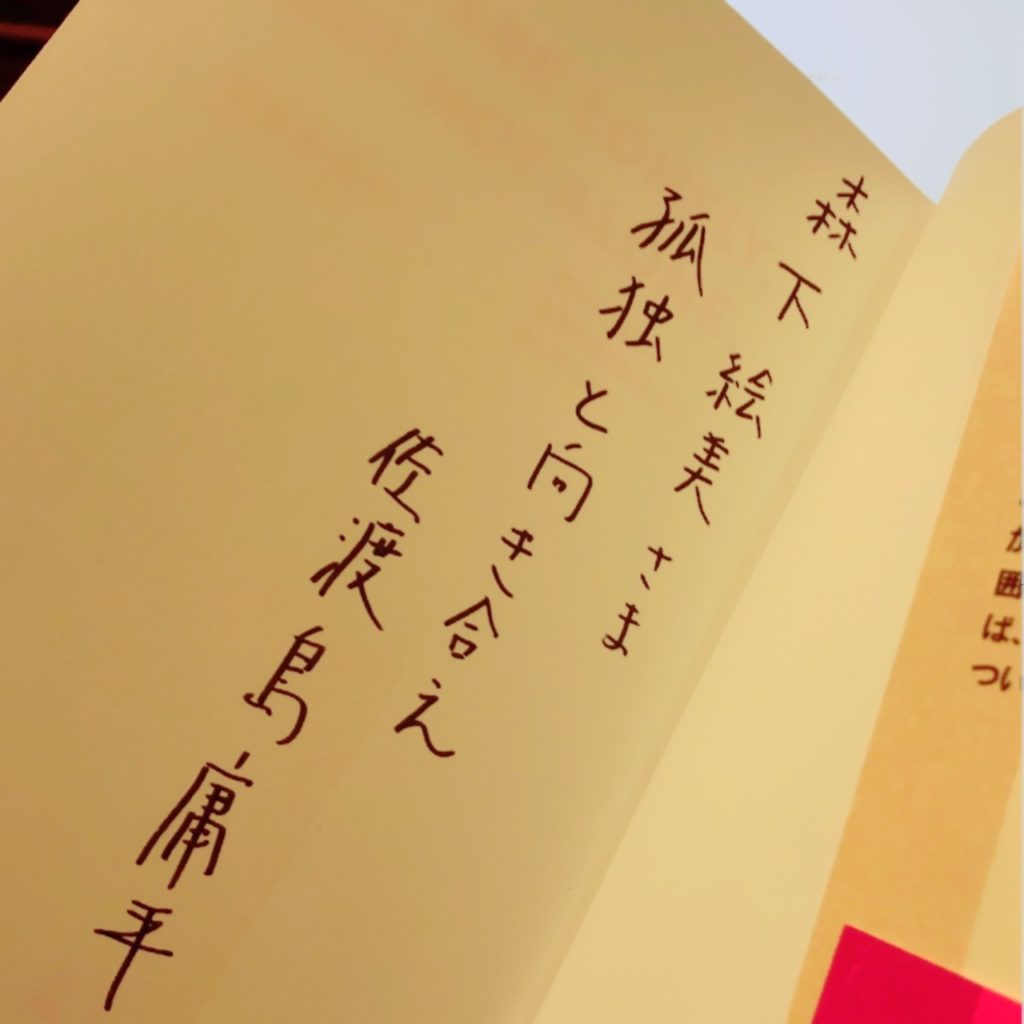 森下絵美さま
孤独と向き合え
佐渡島庸平
囲
ば、
つい